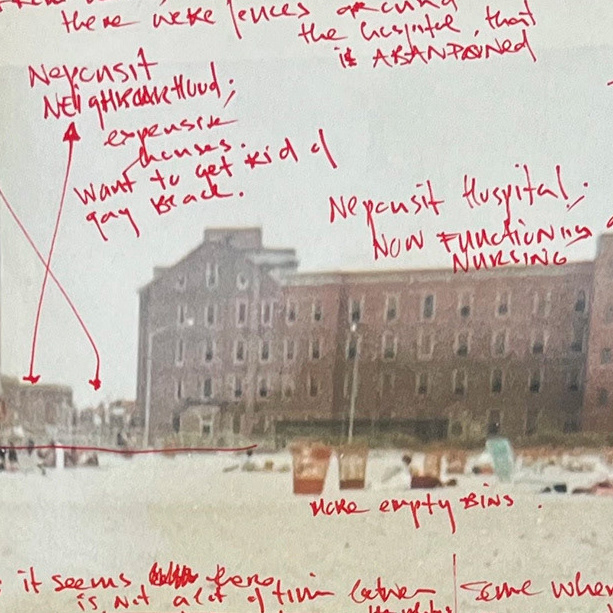 there were fences around
the hospital, that
is ABANDONED
Neponsit
NEIGHBOURHOOD;
expensive
houses.
want to get rid of
gay Beach.
Neponsit Hospital;
NOW FUNCTIONING
NURSING
MORE empty BINS.
it seems here
is not a lot of time between
some where